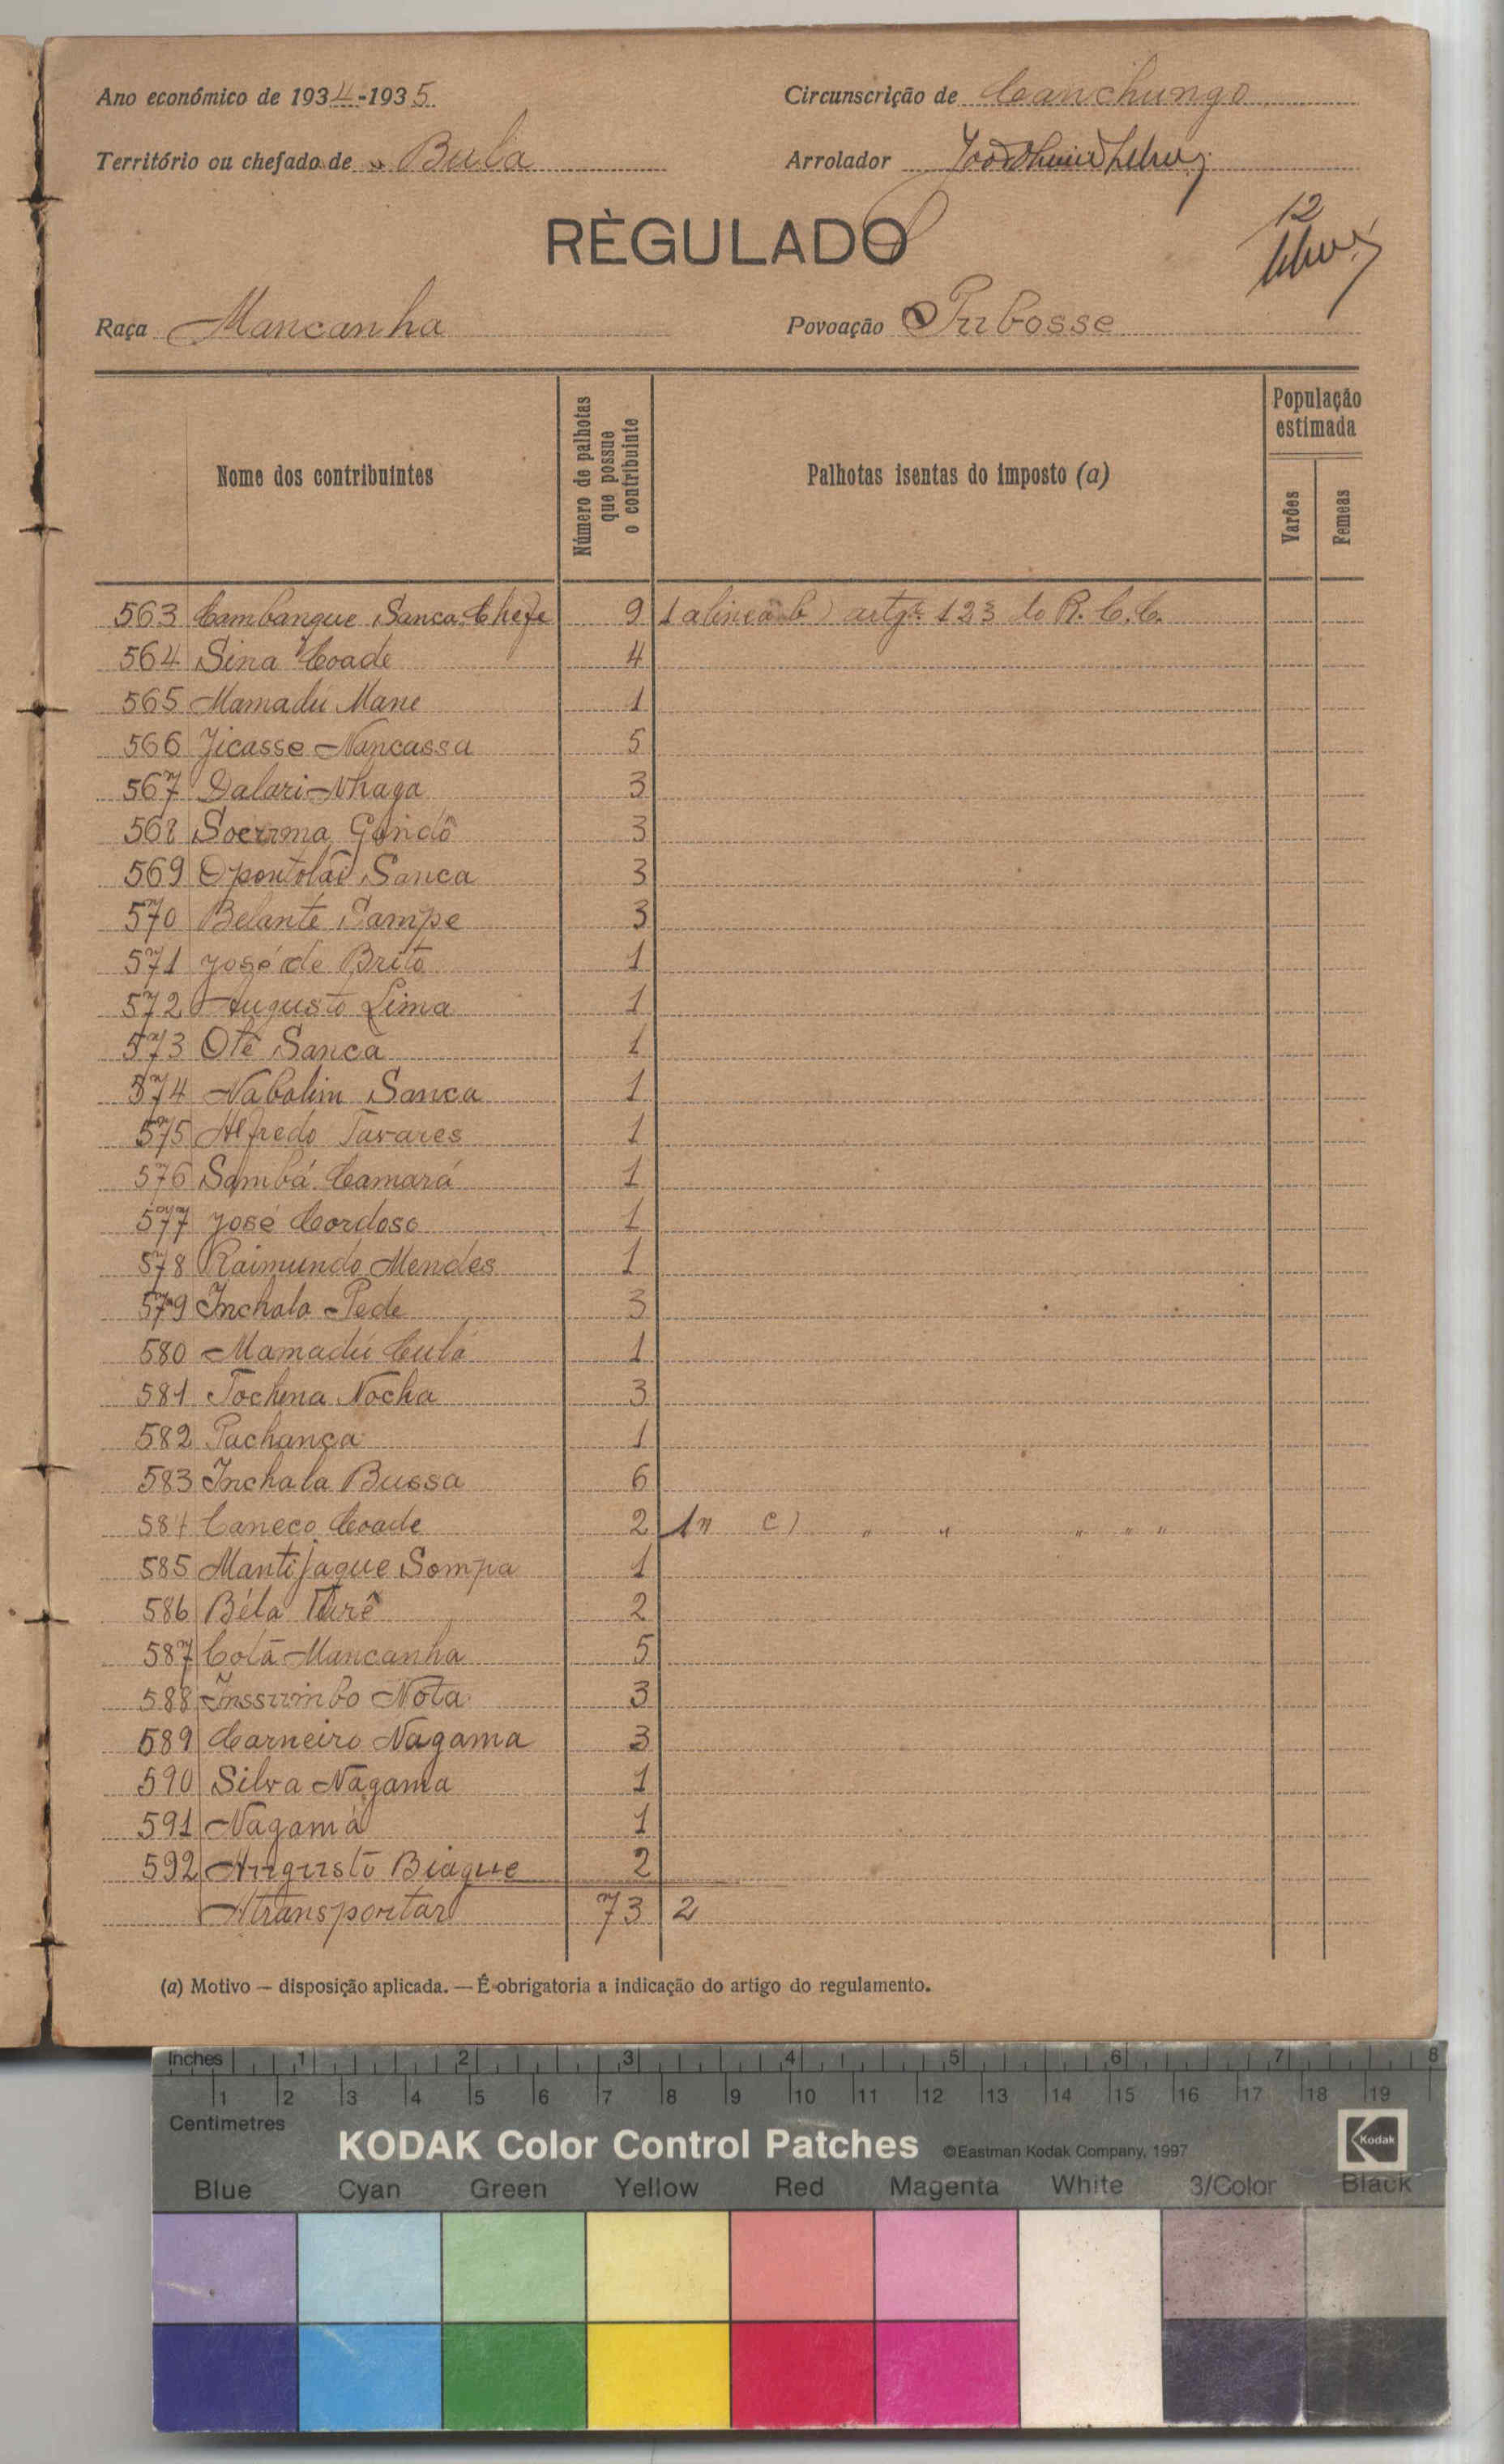 Ano económico de 1934-1935
Circunscrição de Canchungo
Território ou chefado de Bula
Arrolador
RÈGULADO
12
Raça Mancanha
Povoação Pubosse
Nome dos contribuintes
Número de palhotas que possue o contribuinte
Palhotas isentas do imposto (a)
População estimada
Varões
Femeas
563 Cambanque Sanca Chefe 9 1 alinea b) artgº 123 do R.C.C.
564 Sina Coade 4
565 Mamadú Mane 1
566 Jicasse Nancassa 5
567 Dalari Nhaga 3
568 Gandô 3
569 Sanca 3
570 Belante Sampe 3
571 José de Brito 1
572 Augusto Lima 1
573 Otê Sanca 1
574 Nabolim Sanca 1
575 Alfredo Tavares 1
576 Sambá Camará 1
577 José Cordoso 1
578 Raimundo Mendes 1
579 Inchala Pede 3
580 Mamadú Culá 1
581 Tochena Nocha 3
582 Pachança 1
583 Inchala Bussa 6
584 Caneco Coade 2 1 " c) " " " " "
585 Mantijaque Sompa 1
586 Béla Turê 2
587 Colá Mancanha 5
588 Inssumbo Nota 3
589 Carneiro Nagama 3
590 Silva Nagama 1
591 Nagamá 1
592 Augusto Biague 2
A transportar 73 2
(a) Motivo — disposição aplicada. — É obrigatoria a indicação do artigo do regulamento.
Inches 1 2 3 4 5 6 7 8
1 2 3 4 5 6 7 8 9 10 11 12 13 14 15 16 17 18 19
Centimetres
KODAK Color Control Patches ©Eastman Kodak Company, 1997 Kodak
Blue Cyan Green Yellow Red Magenta White 3/Color Black